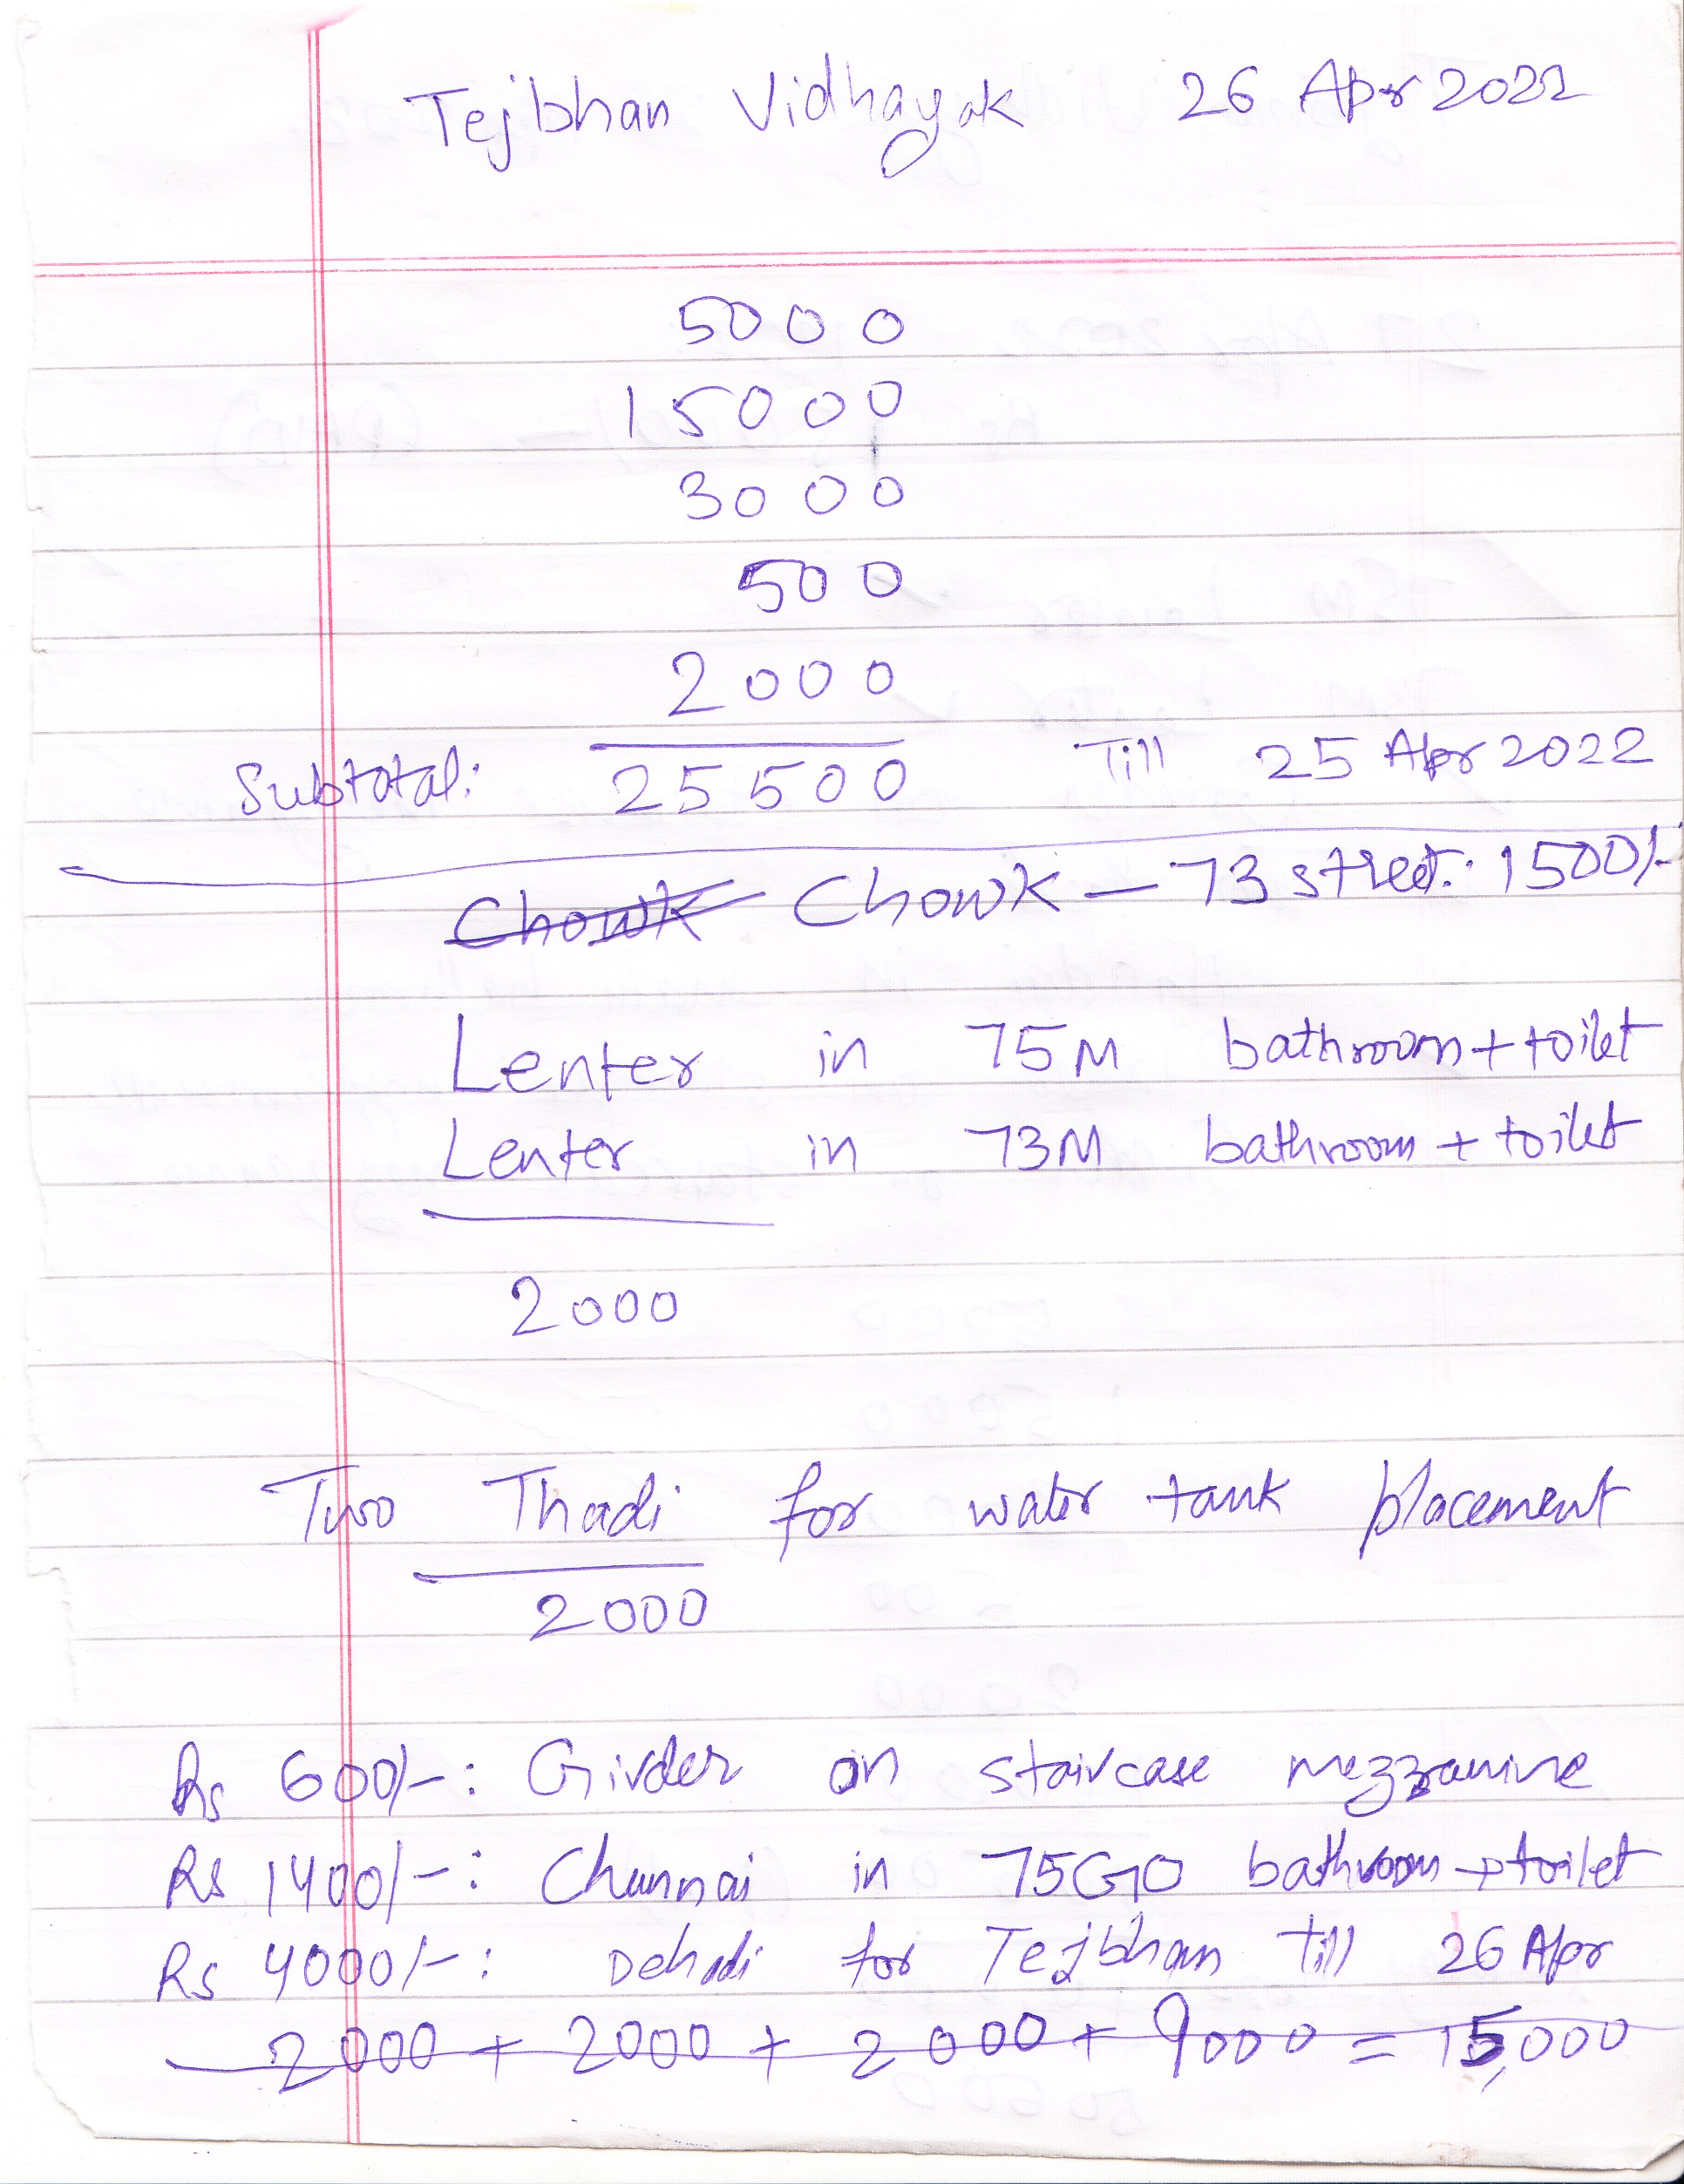 Tejbhan Vidhayak 26 Apr 2022
5000
15000
3000
500
2000
Subtotal: 25500 Till 25 Apr 2022
Chowk Chowk - 73 street: 1500/-
Lenter in 75M bathroom + toilet
Lenter in 73M bathroom + toilet
2000
Two Thadi for water tank placement
2000
Rs 600/-: Girder on staircase mezzanine
Rs 1400/-: Chunnai in 75GO bathroom + toilet
Rs 4000/-: Dehadi for Tejbhan till 26 Apr
2000 + 2000 + 2000 + 9000 = 15,000